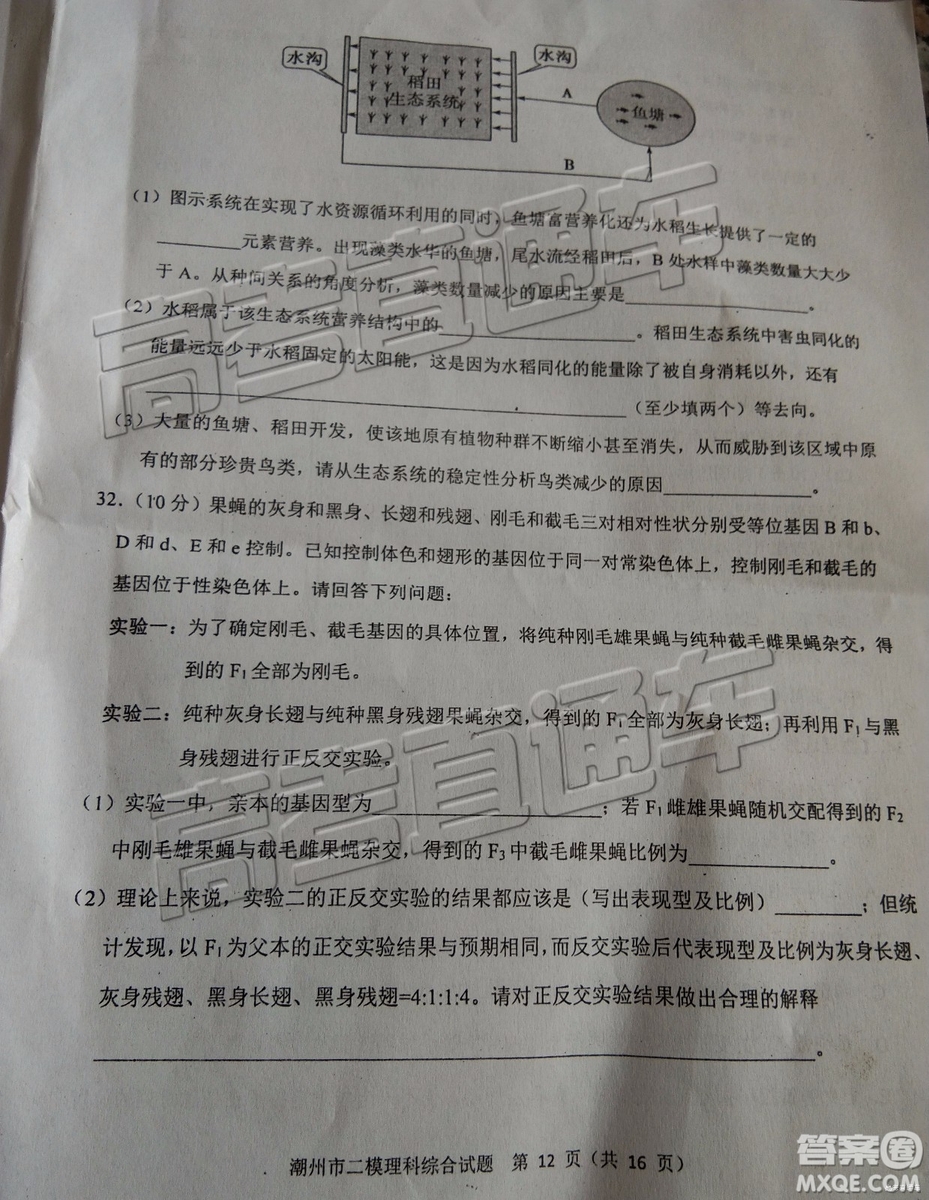 水沟
水沟
稻田
生态系统
A
鱼塘
B
（1）图示系统在实现了水资源循环利用的同时，鱼塘富营养化还为水稻生长提供了一定的
________元素营养。出现藻类水华的鱼塘，尾水流经稻田后，B 处水样中藻类数量大大少
于 A。从种间关系的角度分析，藻类数量减少的原因主要是________________。
（2）水稻属于该生态系统营养结构中的________________。稻田生态系统中害虫同化的
能量远远少于水稻固定的太阳能，这是因为水稻同化的能量除了被自身消耗以外，还有
________________________________（至少填两个）等去向。
（3）大量的鱼塘、稻田开发，使该地原有植物种群不断缩小甚至消失，从而威胁到该区域中原
有的部分珍贵鸟类，请从生态系统的稳定性分析鸟类减少的原因____________。
32.（10 分）果蝇的灰身和黑身、长翅和残翅、刚毛和截毛三对相对性状分别受等位基因 B 和 b、
D 和 d、E 和 e 控制。已知控制体色和翅形的基因位于同一对常染色体上，控制刚毛和截毛的
基因位于性染色体上。请回答下列问题：
实验一：为了确定刚毛、截毛基因的具体位置，将纯种刚毛雄果蝇与纯种截毛雌果蝇杂交，得
到的 F₁ 全部为刚毛。
实验二：纯种灰身长翅与纯种黑身残翅果蝇杂交，得到的 F₁ 全部为灰身长翅；再利用 F₁ 与黑
身残翅进行正反交实验。
（1）实验一中，亲本的基因型为________________；若 F₁ 雌雄果蝇随机交配得到的 F₂
中刚毛雄果蝇与截毛雌果蝇杂交，得到的 F₃ 中截毛雌果蝇比例为____________。
（2）理论上来说，实验二的正反交实验的结果都应该是（写出表现型及比例）________；但统
计发现，以 F₁ 为父本的正交实验结果与预期相同，而反交实验后代表现型及比例为灰身长翅、
灰身残翅、黑身长翅、黑身残翅=4:1:1:4。请对正反交实验结果做出合理的解释
________________________________________________。
潮州市二模理科综合试题 第 12 页（共 16 页）
高考直通车
高考直通车
答案圈
MXQE.COM